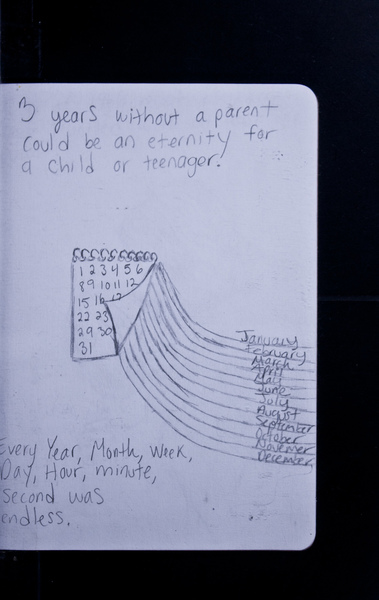 3 years without a parent
could be an eternity for
a child or teenager.
1 2 3 4 5 6
8 9 10 11 12
15 16 17
22 23
29 30
31
January
February
March
April
May
June
July
August
September
October
November
December
Every Year, Month, Week,
Day, Hour, minute,
second was
endless.